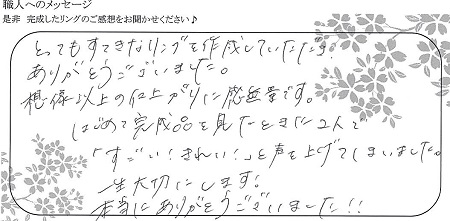 職人へのメッセージ
是非 完成したリングのご感想をお聞かせください♪
とってもすてきなリングを作成していただき
ありがとうございました。
想像以上の仕上がりに感無量です。
はじめて完成品を見たときに2人で
「すごい!きれい!」と声を上げてしまいました。
一生大切にします!
本当にありがとうございました!!